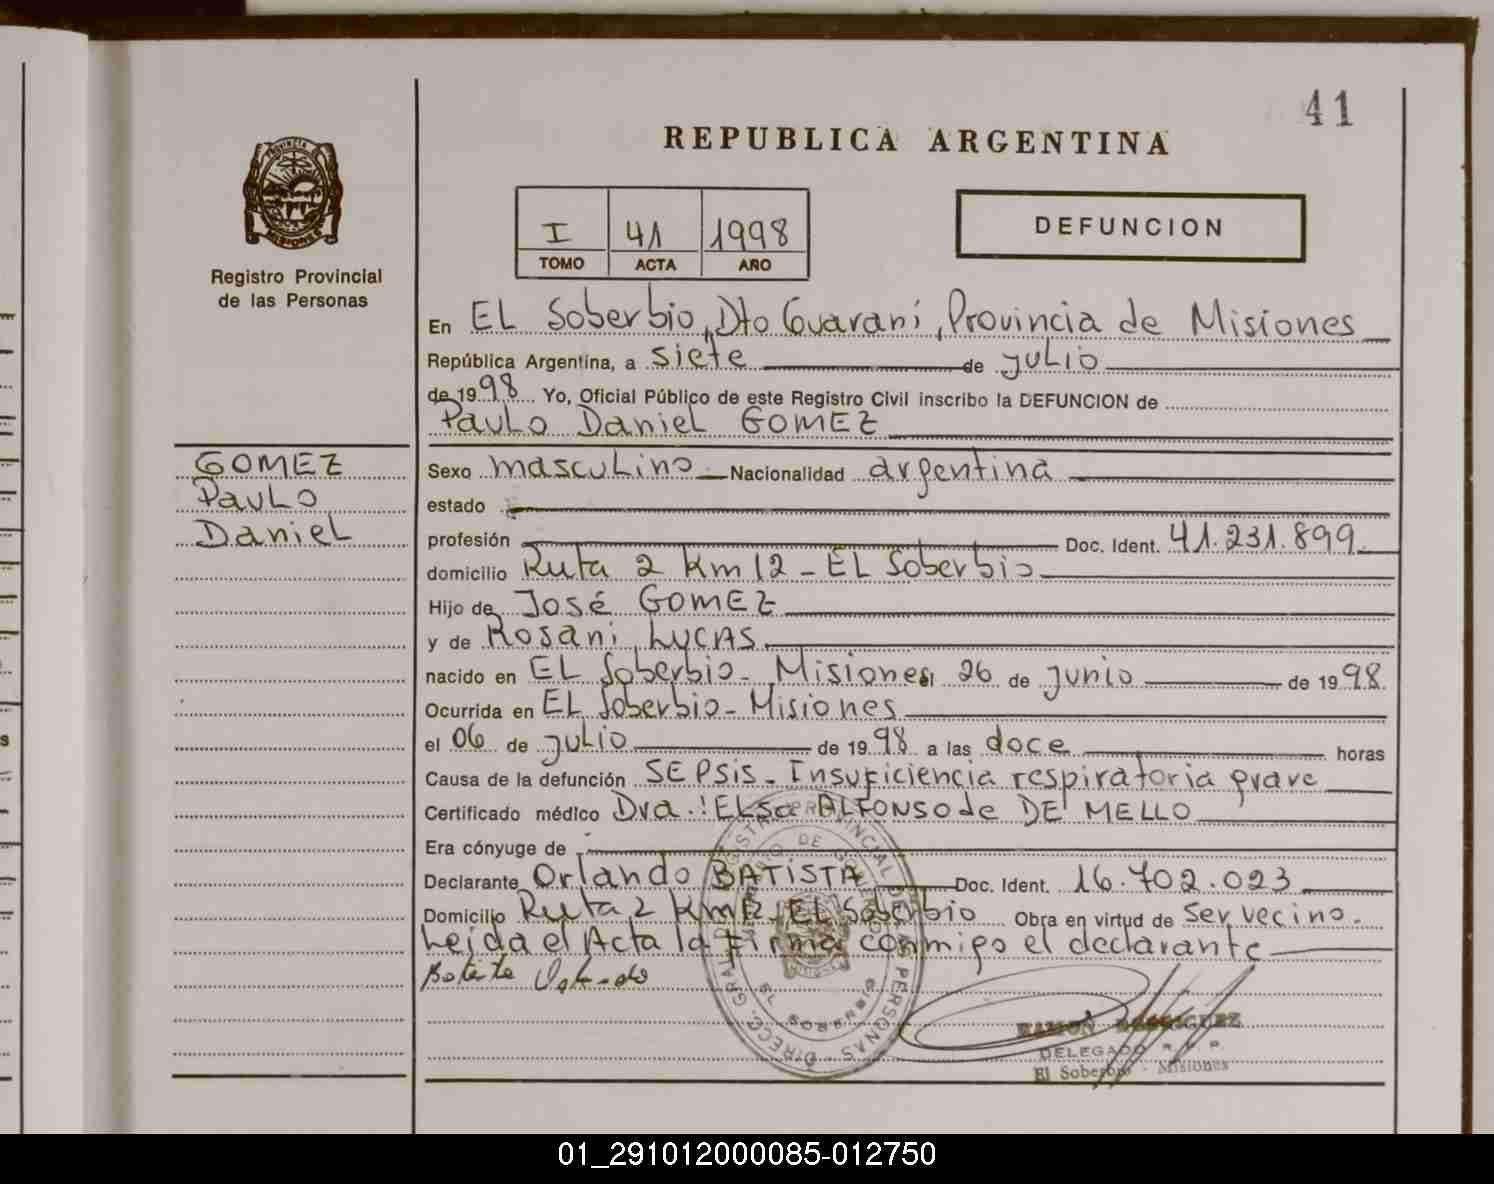 41
REPUBLICA ARGENTINA
PROVINCIA DE
MISIONES
Registro Provincial
de las Personas
DEFUNCION
I 41 1998
TOMO ACTA AÑO
En EL Soberbio, Dto Guaraní, Provincia de Misiones
República Argentina, a siete de julio
de 1998 Yo, Oficial Público de este Registro Civil inscribo la DEFUNCION de
Paulo Daniel GOMEZ
GOMEZ
Paulo
Daniel
Sexo masculino Nacionalidad argentina
estado
profesión Doc. Ident. 41.231.899.
domicilio Ruta 2 Km 12 - EL Soberbio
Hijo de José GOMEZ
y de Rosani LUCAS
nacido en EL Soberbio - Misiones el 26 de junio de 1998.
Ocurrida en EL Soberbio - Misiones
el 06 de julio de 1998 a las doce horas
Causa de la defunción SEPSIS - Insuficiencia respiratoria grave
Certificado médico Dra.: ELSA ALFONSO de DE MELLO
Era cónyuge de
Declarante Orlando BATISTA Doc. Ident. 16.702.023
Domicilio Ruta 2 Km 12 - EL Soberbio Obra en virtud de ser vecino.
Leida el Acta la firma conmigo el declarante
Batista
DIREC. GRAL. REGISTRO PROVINCIAL DE LAS PERSONAS
MINISTERIO DE GOBIERNO
EL SOBERBIO
RAMON RODRIGUEZ
DELEGADO R. P. P.
El Soberbio - Misiones
01_291012000085-012750